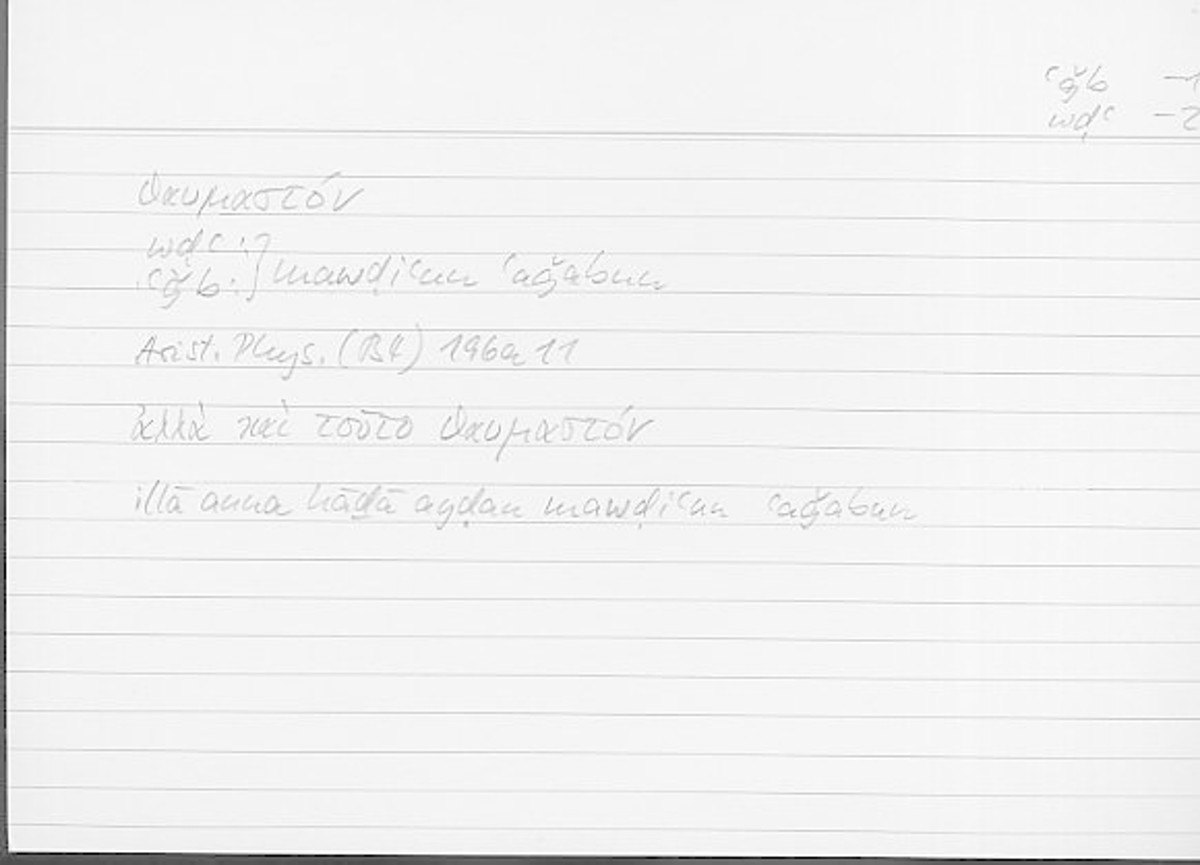 ʿǧb –1
wḍʿ –2
θαυμαστόν
wḍʿ:
ʿǧb:} mawḍiʿun ʿaǧabun
Arist. Phys. (B4) 196a 11
ἀλλὰ καὶ τοῦτο θαυμαστόν
illā anna hāḏā ayḍan mawḍiʿun ʿaǧabun